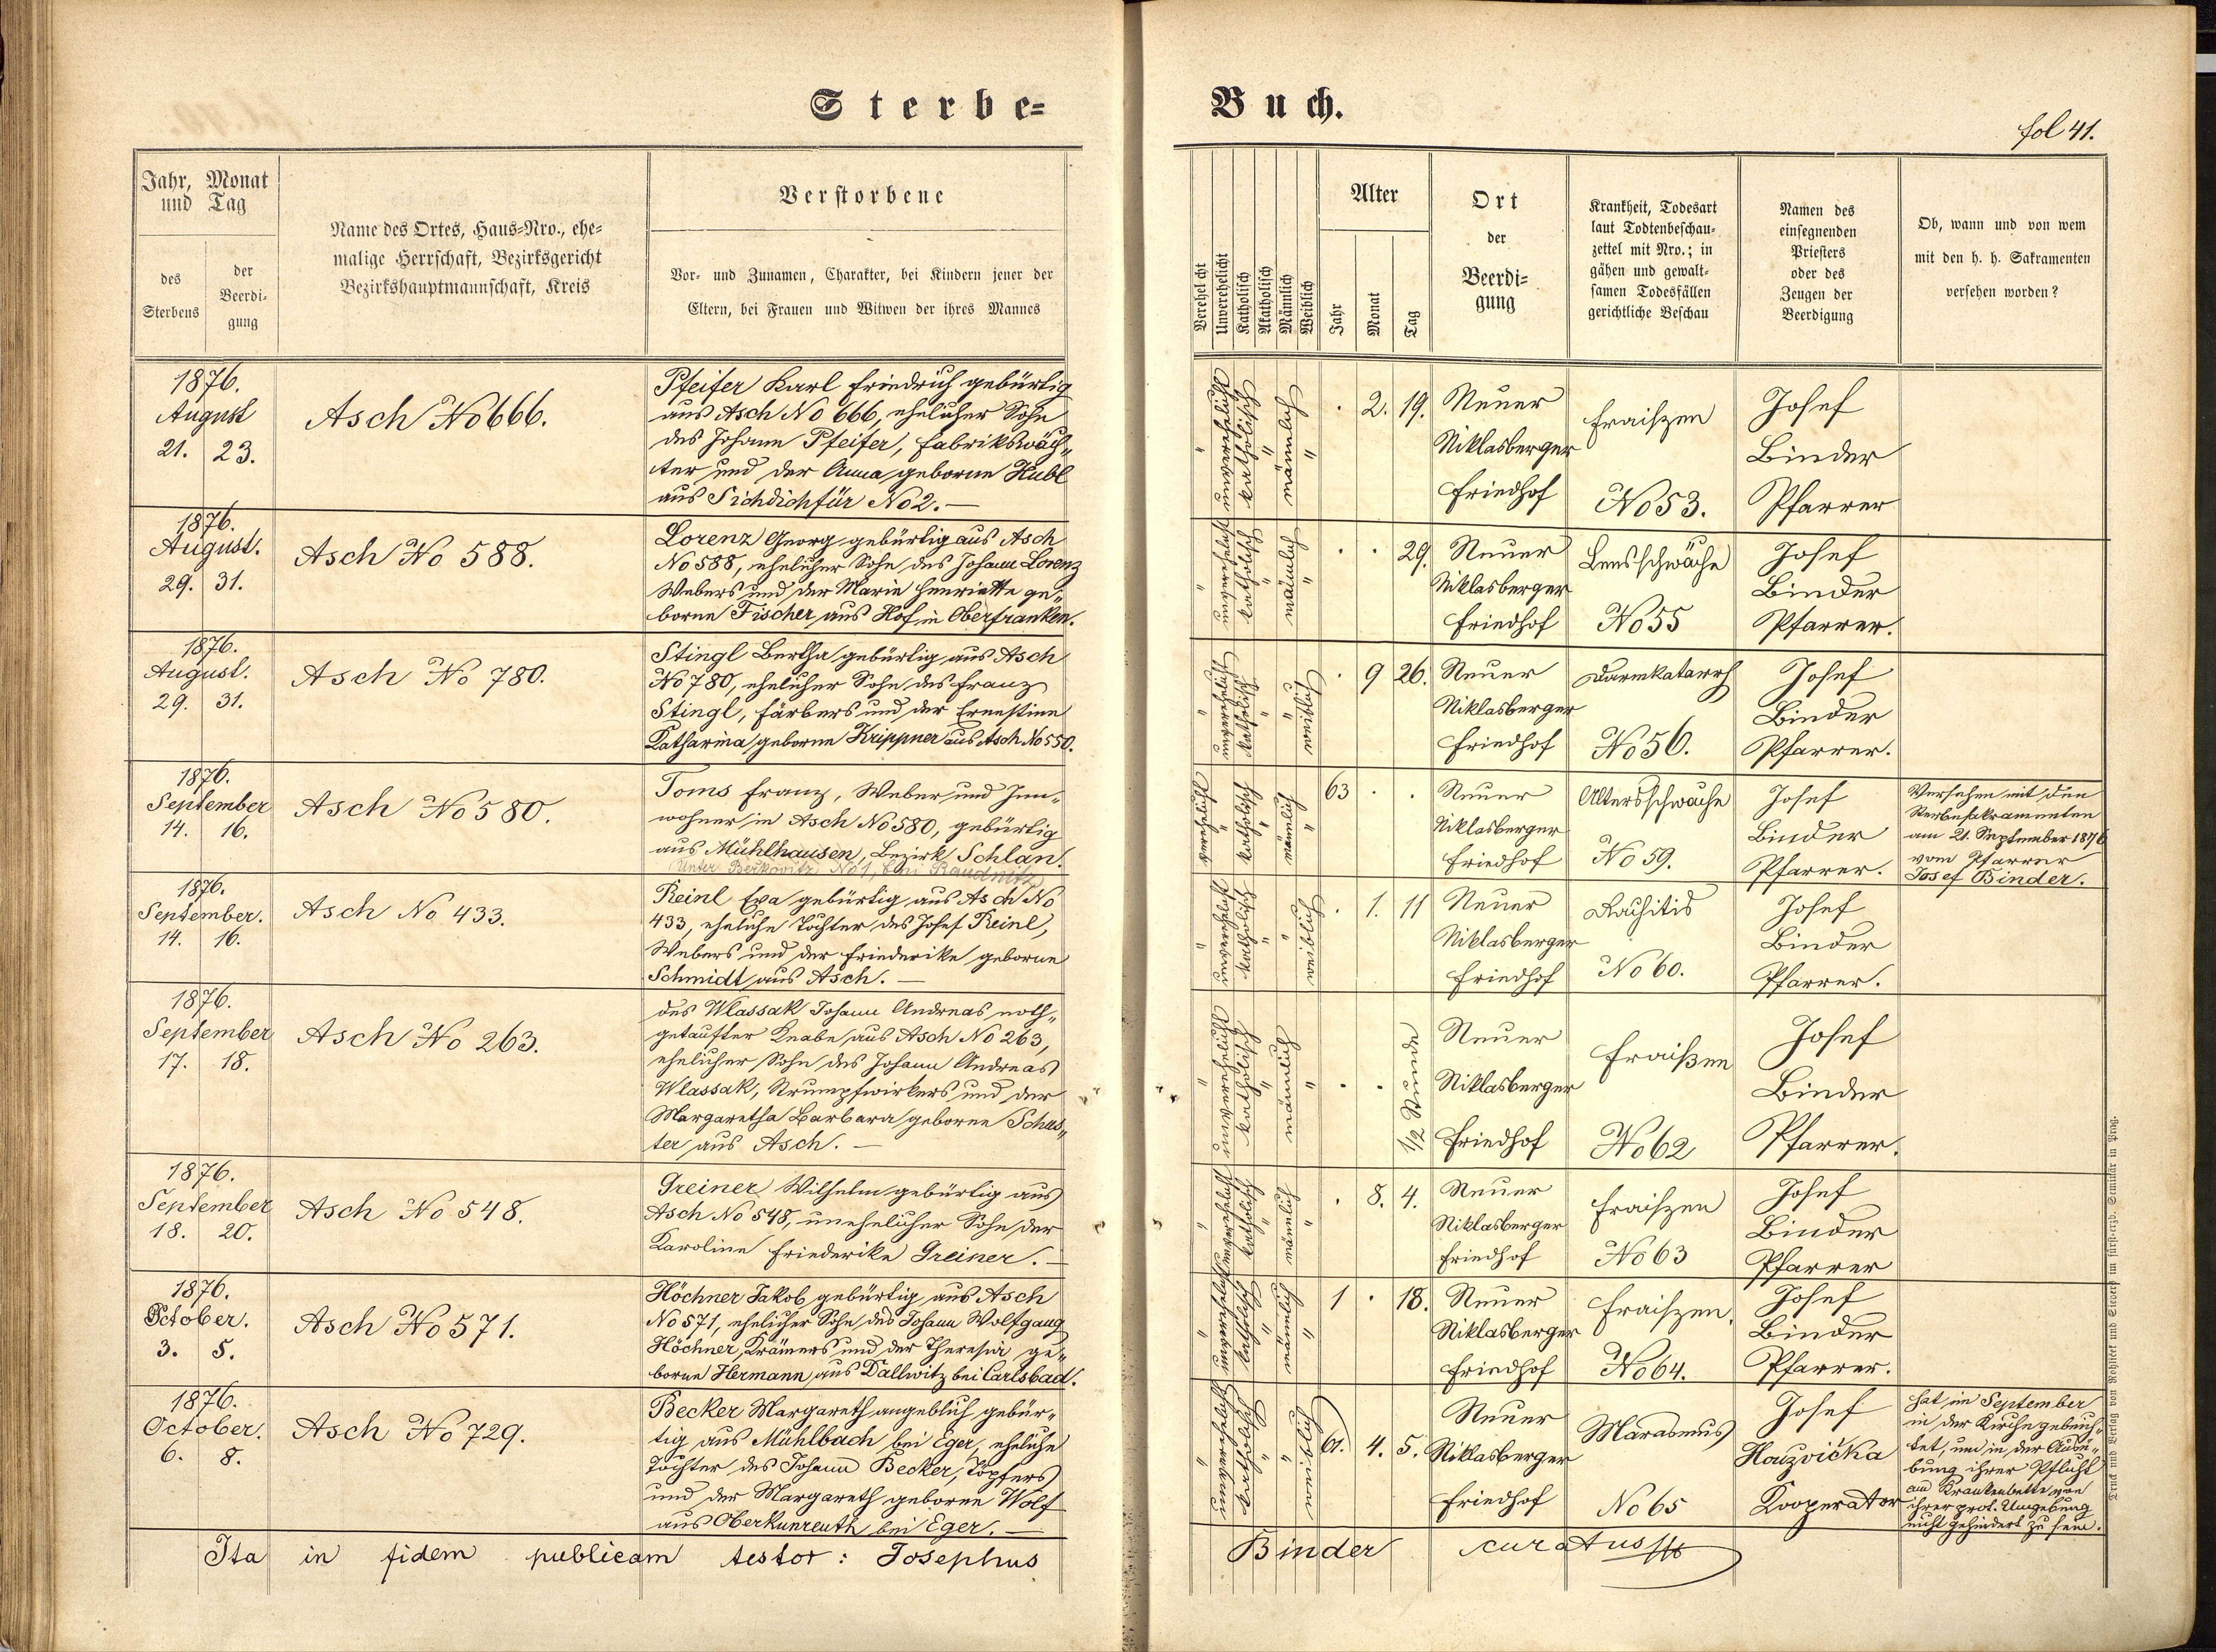 Sterbe=
Jahr, Monat
und Tag
des
Sterbens
der
Beerdi-
gung
Name des Ortes, Haus=Nro., ehe-
malige Herrschaft, Bezirksgericht
Bezirkshauptmannschaft, Kreis
Verstorbene
Vor- und Zunamen, Charakter, bei Kindern jener der
Eltern, bei Frauen und Witwen der ihres Mannes
1876.
August
21. 23.
Asch No 666.
Pfeifer Karl Friedrich gebürtig
aus Asch No 666, ehelicher Sohn
des Johann Pfeifer, Fabrikswäch„
ter und der Anna geborne Hubl
aus Sichdichfür No 2.—
1876.
August.
29. 31.
Asch No 588.
Lorenz Georg gebürtig aus Asch
No 588, ehelicher Sohn des Johann Lorenz
Webers und der Marie Henriette ge„
borne Fischer aus Hof in Oberfranken.
1876.
August.
29. 31.
Asch No 780.
Stingl Bertha gebürtig aus Asch
No 780, ehelicher Sohn des Franz
Stingl, Färbers und der Ernestine
Katharina geborne Krippner aus Asch No 550.
1876.
September
14. 16.
Asch No 580.
Toms Franz, Weber und Inn„
wohner in Asch No 580, gebürtig
aus Mühlhausen, Bezirk Schlan.
Unter Berkovitz No 1, bei Raudnitz
1876.
September.
14. 16.
Asch No 433.
Reinl Eva gebürtig aus Asch No
433, eheliche Tochter des Josef Reinl,
Webers und der Friederike geborne
Schmidt aus Asch.—
1876.
September
17. 18.
Asch No 263.
des Wlassak Johann Andreas noth„
getaufter Knabe aus Asch No 263,
ehelicher Sohn des Johann Andreas
Wlassak, Strumpfwirkers und der
Margaretha Barbara geborne Schus„
ter aus Asch.—
1876.
September
18. 20.
Asch No 548.
Greiner Wilhelm gebürtig aus
Asch No 548, unehelicher Sohn der
Karoline Friederike Greiner.—
1876.
October.
3. 5.
Asch No 571.
Höchner Jakob gebürtig aus Asch
No 571, ehelicher Sohn des Johann Wolfgang
Höchner, Krämers und der Theresia ge„
borne Hermann aus Dallwitz bei Carlsbad.
1876.
October.
6. 8.
Asch No 729.
Becker Margareth angeblich gebür„
tig aus Mühlbach bei Eger, eheliche
Tochter des Johann Becker, Töpfers
und der Margareth geborne Wolf
aus Oberkunreuth bei Eger.—
Ita in fidem publicam testor: Josephus
Buch.
fol 41.
Verehelicht
Unverehelicht
Katholisch
Akatholisch
Männlich
Weiblich
Alter
Jahr
Monat
Tag
Ort
der
Beerdi-
gung
Krankheit, Todesart
laut Todtenbeschau-
zettel mit Nro.; in
gähen und gewalt-
samen Todesfällen
gerichtliche Beschau
Namen des
einsegnenden
Priesters
oder des
Zeugen der
Beerdigung
Ob, wann und von wem
mit den h. h. Sakramenten
versehen worden?
" unverehelicht katholisch " männlich "
. 2. 19.
Neuer
Niklasberger
Friedhof
Fraiszen
No 53.
Josef
Binder
Pfarrer
" unverehelicht katholisch " männlich "
. . 29.
Neuer
Niklasberger
Friedhof
Lensschwäche
No 55
Josef
Binder
Pfarrer.
" unverehelicht katholisch " " weiblich
. 9 26.
Neuer
Niklasberger
Friedhof
Darmkatarrh
No 56.
Josef
Binder
Pfarrer.
verehelicht " katholisch " männlich "
63 . .
Neuer
Niklasberger
Friedhof
Altersschwäche
No 59.
Josef
Binder
Pfarrer.
Versehen mit den
Sterbesakramenten
am 21. September 1876
vom Pfarrer
Josef Binder.
" unverehelicht katholisch " " weiblich
. 1. 11
Neuer
Niklasberger
Friedhof
Rachitis
No 60.
Josef
Binder
Pfarrer.
" unverehelicht katholisch " männlich "
. . 1/2 Stunde
Neuer
Niklasberger
Friedhof
Fraißen
No 62
Josef
Binder
Pfarrer.
" unverehelicht katholisch " männlich "
. 8. 4.
Neuer
Niklasberger
Friedhof
Fraiszen
No 63
Josef
Binder
Pfarrer
" unverehelicht katholisch " männlich "
1 . 18.
Neuer
Niklasberger
Friedhof
Fraiszen.
No 64.
Josef
Binder
Pfarrer.
" unverehelicht katholisch " " weiblich
61. 4. 5.
Neuer
Niklasberger
Friedhof
Marasmus
No 65
Josef
Houzvička
Kooperator
hat im September
in der Kirche gebeich„
tet, um in der Ausü„
bung ihrer Pflicht
am Krankenbette von
ihrer prot. Umgebung
nicht gehindert zu sein.
Binder curatus
Druck und Verlag von Rohliček und Sievers im fürst-erzb. Seminär in Prag.